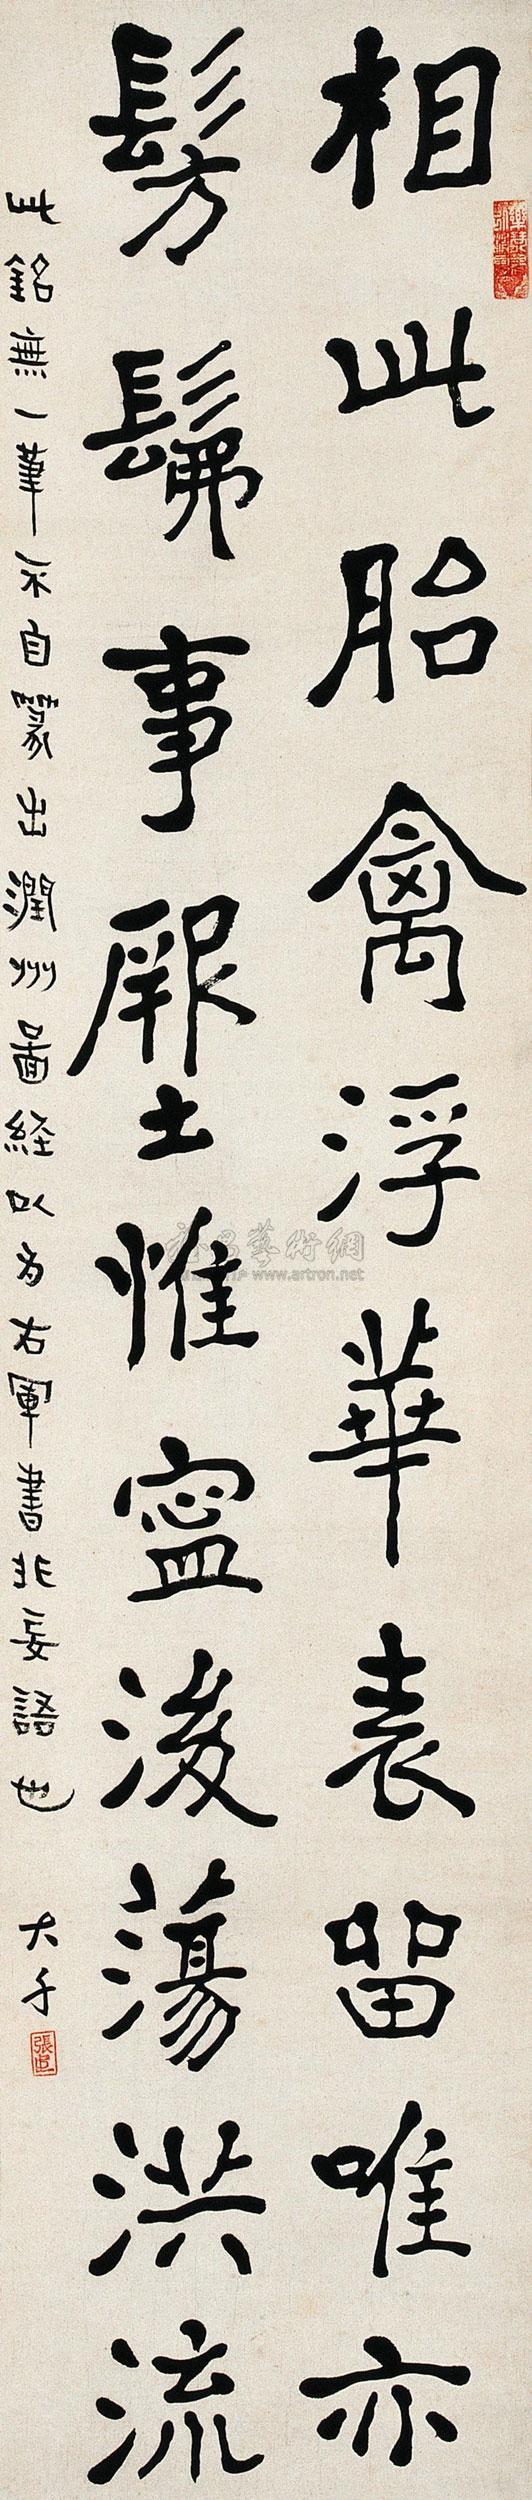 相此胎禽浮華表留唯亦
髣髴事厥土惟寧後蕩洪流
此銘無一筆不自篆出潤州圖經以為右軍書非妄語也 大千
www.artron.net